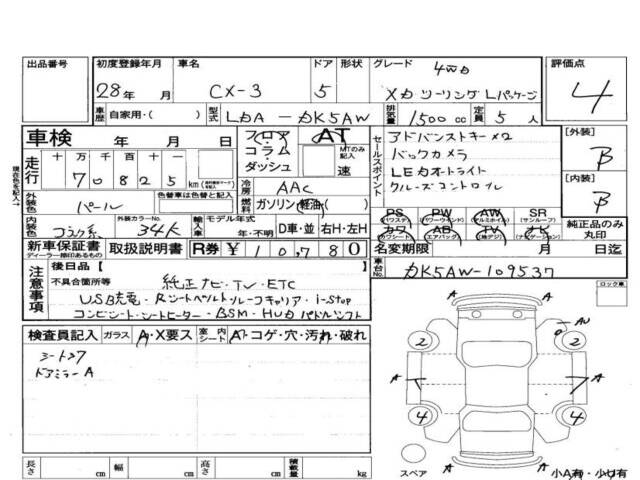 出品番号 初度登録年月 車名 ドア 形状 グレード 評価点
28年 月 CX-3 5 4WD XDツーリング Lパッケージ 4
車歴 自家用・( ) 型式 LDA - DK5AW 排気量 1500cc 定員 5人
車検 年 月 日 フロア AT セールスポイント アドバンストキー×2 [外装] B
走行 十万千百十 70825 km コラム・ダッシュ MTのみ記入 速 バックカメラ
LEDオートライト [内装] B
冷房 AAC クルーズコントロール
外装色 パール 色替車は色替と記入 燃料 ガソリン(軽油)( )
内装色 外装カラーNo. 34K 輸入車 モデル年式 年・不明 D車・並 右H・左H
PS (パワステ) PW (パワーウインド) AW (アルミホイル) SR (サンルーフ) 純正品のみ丸印
カワ (カワシート) AB (エアバッグ) TV (テレビ) ナビ (ナビゲーション)
新車保証書 ディーラー捺印あるもの 取扱説明書 R券 ¥ 10,780 名変期限 月 日迄
注意事項 後日品[ ] 車台No. DK5AW-109537
不具合箇所など 純正ナビ・TV・ETC ロック車
USB充電・Rシートベルト・ルーフキャリア・i-stop
コンビシート・シートヒーター・BSM・HUD パドルシフト
検査員記入 ガラス A・X要ス 室内シート A・コゲ・穴・汚れ・破れ
シートスア
ドアミラーA
A AU
2 2
A A A A
4 4
A
スペア 小A有・小U有
長さ cm 幅 cm 高さ cm 積載量 kg